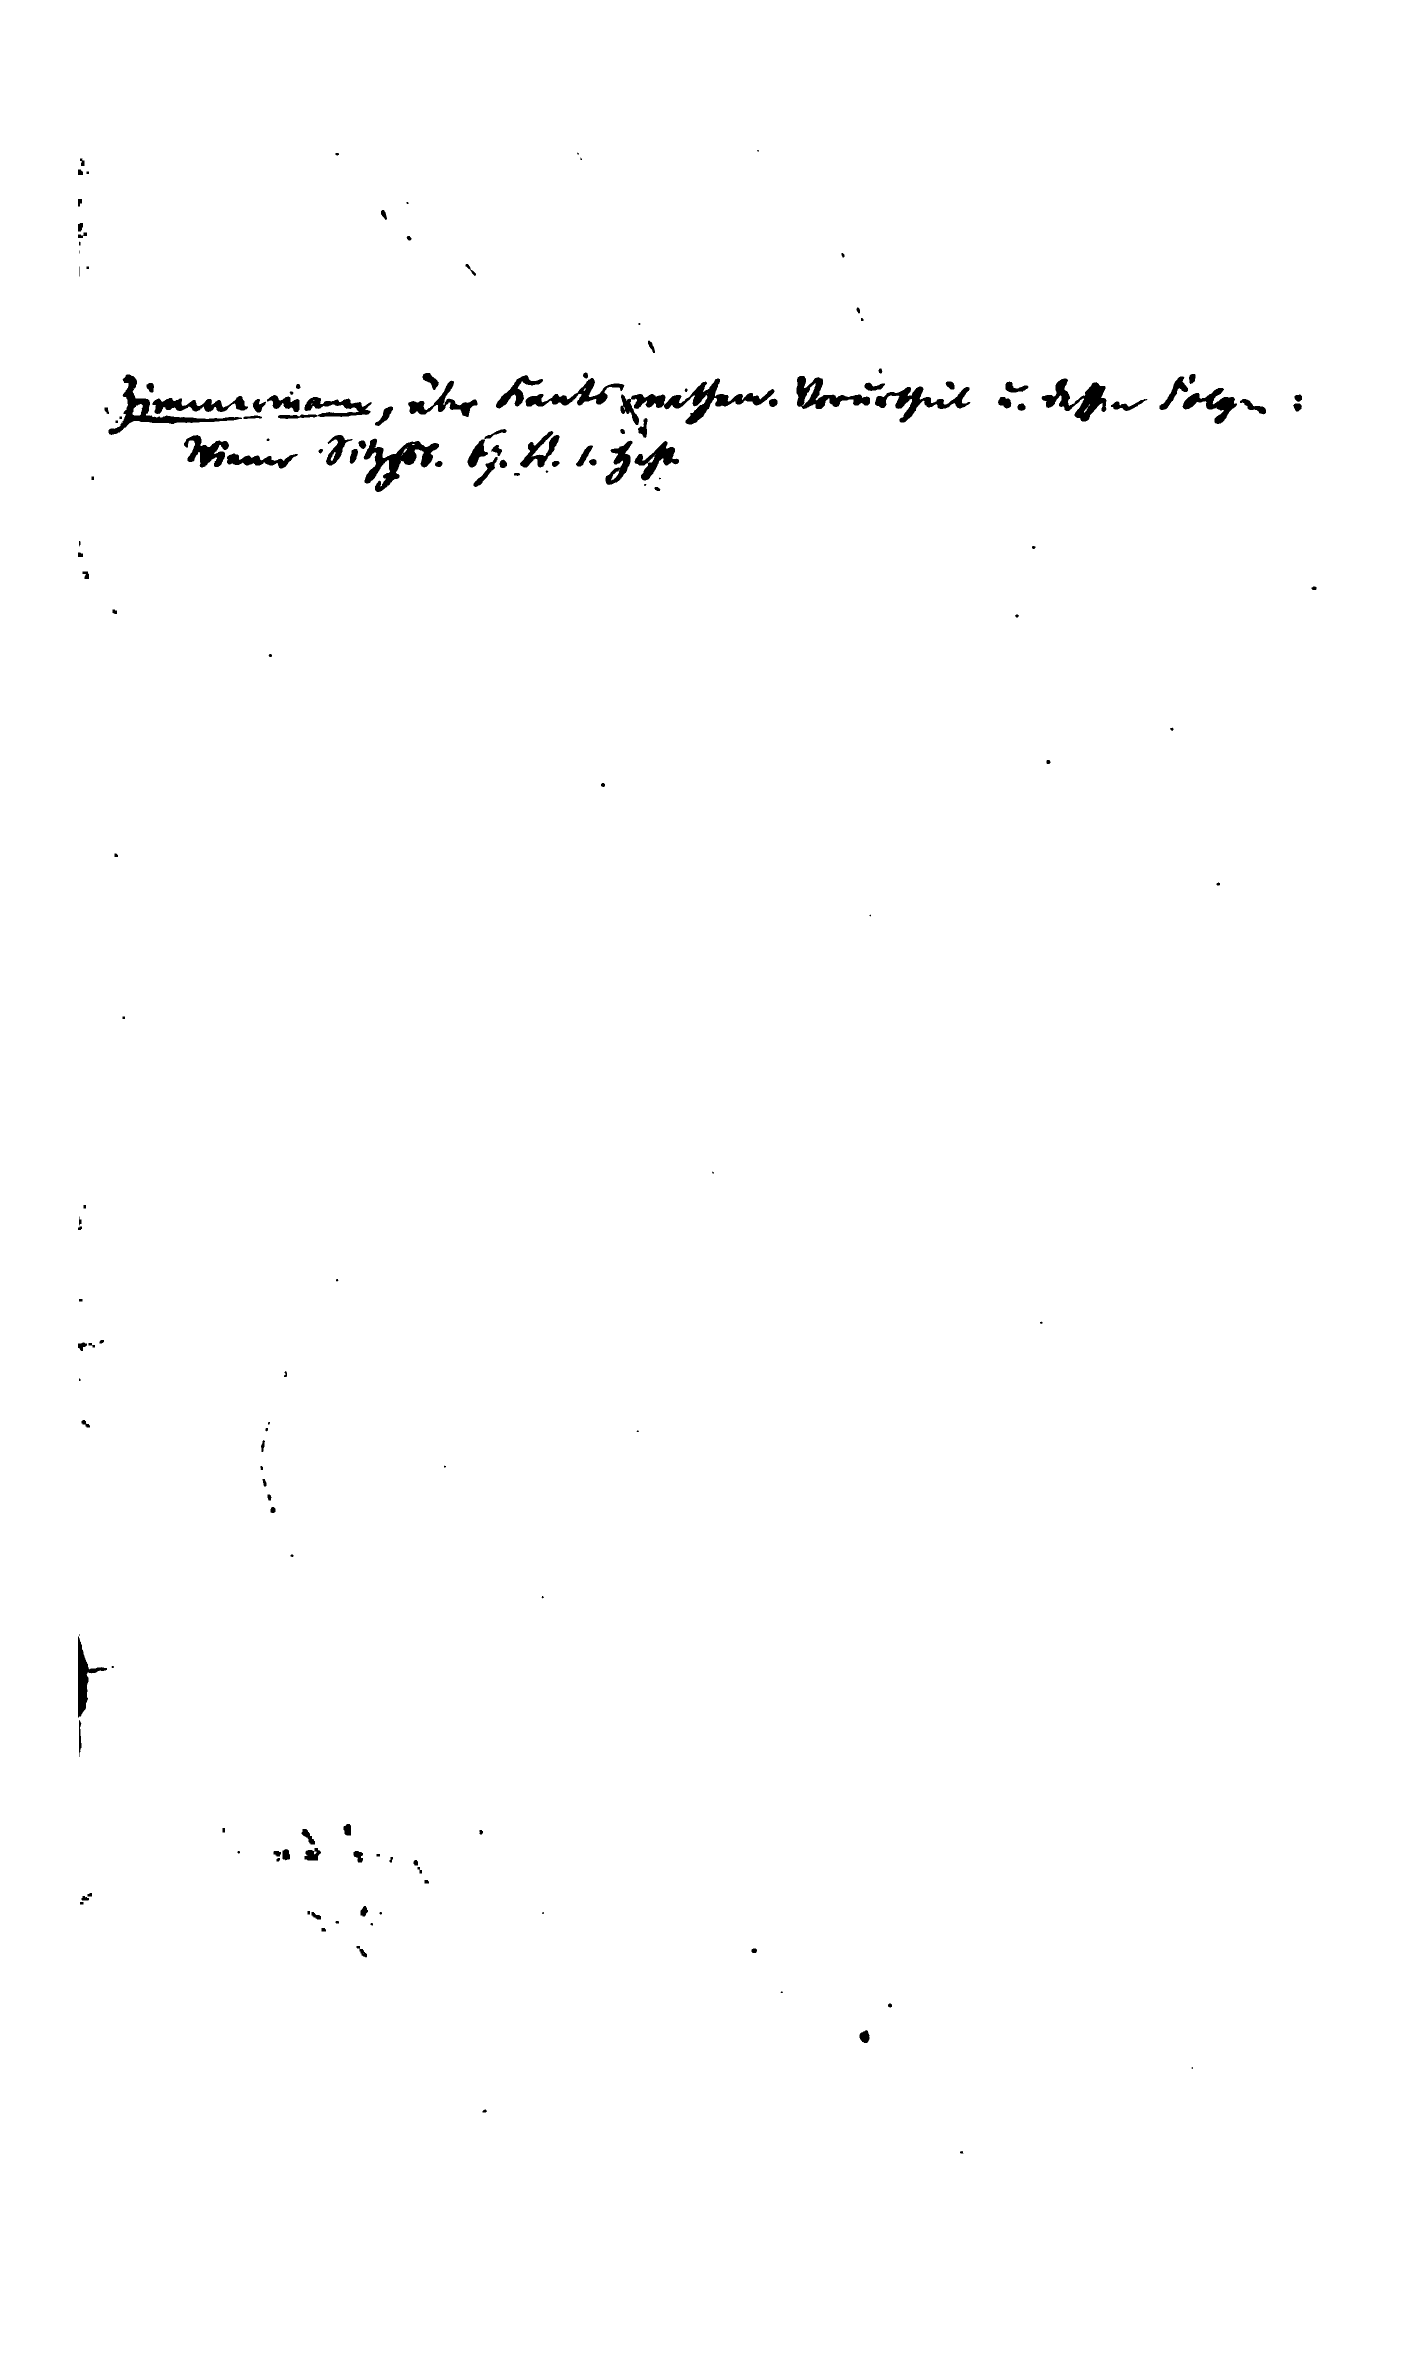 Zimmermann, über Kants mathem. Vorurtheil u. dessen Folgen :
Wiener Sitzgsb. 67. Bd. 1. Heft.